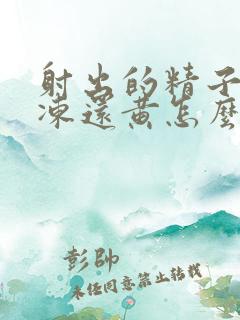 射出的精子
凍還黄怎麼
彭帥
未经同意禁止转载